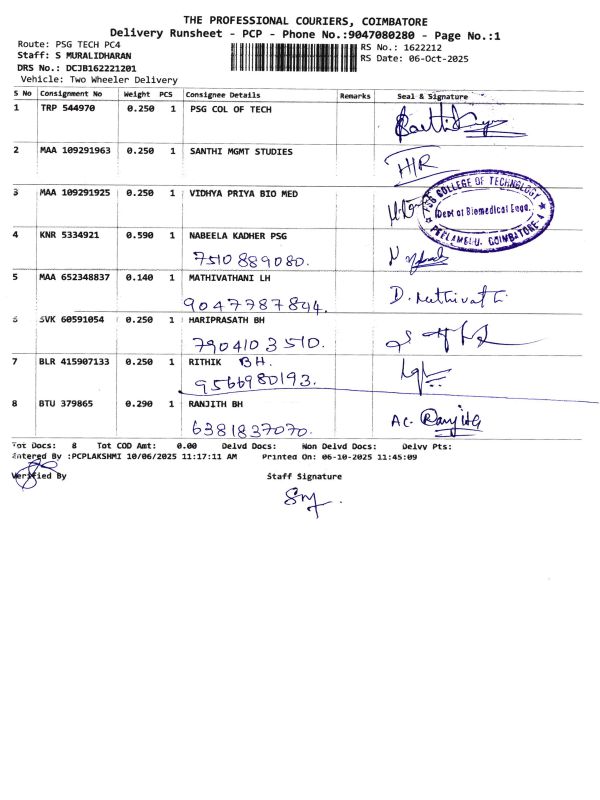 THE PROFESSIONAL COURIERS, COIMBATORE
Delivery Runsheet - PCP - Phone No.:9047080280 - Page No.:1
Route: PSG TECH PC4
Staff: S MURALIDHARAN
RS No.: 1622212
DRS No.: DCJB162221201
RS Date: 06-Oct-2025
Vehicle: Two Wheeler Delivery
S No Consignment No Weight PCS Consignee Details Remarks Seal & Signature
1 TRP 544970 0.250 1 PSG COL OF TECH
2 MAA 109291963 0.250 1 SANTHI MGMT STUDIES
HR
3 MAA 109291925 0.250 1 VIDHYA PRIYA BIO MED
PSG COLLEGE OF TECHNOLOGY
Dept of Biomedical Engg.
PEELAMEDU, COIMBATORE-4
4 KNR 5334921 0.590 1 NABEELA KADHER PSG
7510889080.
5 MAA 652348837 0.140 1 MATHIVATHANI LH
9047787894. D.
6 SVK 60591054 0.250 1 HARIPRASATH BH
7904103510.
7 BLR 415907133 0.250 1 RITHIK BH.
9566980193.
8 BTU 379865 0.290 1 RANJITH BH
6381837070. AC. Ranjith
Tot Docs: 8 Tot COD Amt: 0.00 Delvd Docs: Non Delvd Docs: Delvy Pts:
Entered By :PCPLAKSHMI 10/06/2025 11:17:11 AM Printed On: 06-10-2025 11:45:09
Verified By Staff Signature